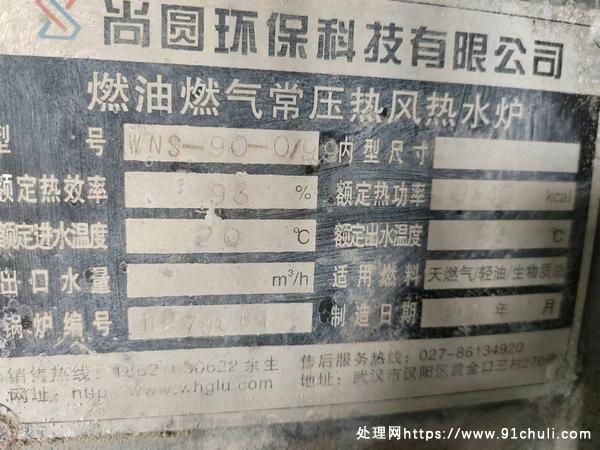 尚圆环保科技有限公司
燃油燃气常压热风热水炉
型 号 WNS-90-0/ 内型尺寸
额定热效率 93 % 额定热功率 kcal
额定进水温度 20 ℃ 额定出水温度 ℃
出口水量 m³/h 适用燃料 天燃气/轻油/生物质油
锅炉编号 制造日期 年 月
销售热线: 余生 售后服务热线: 027-86134920
网址: www.whglu.com 地址: 武汉市汉阳区黄金口三村270号
处理网https://www.91chuli.com/